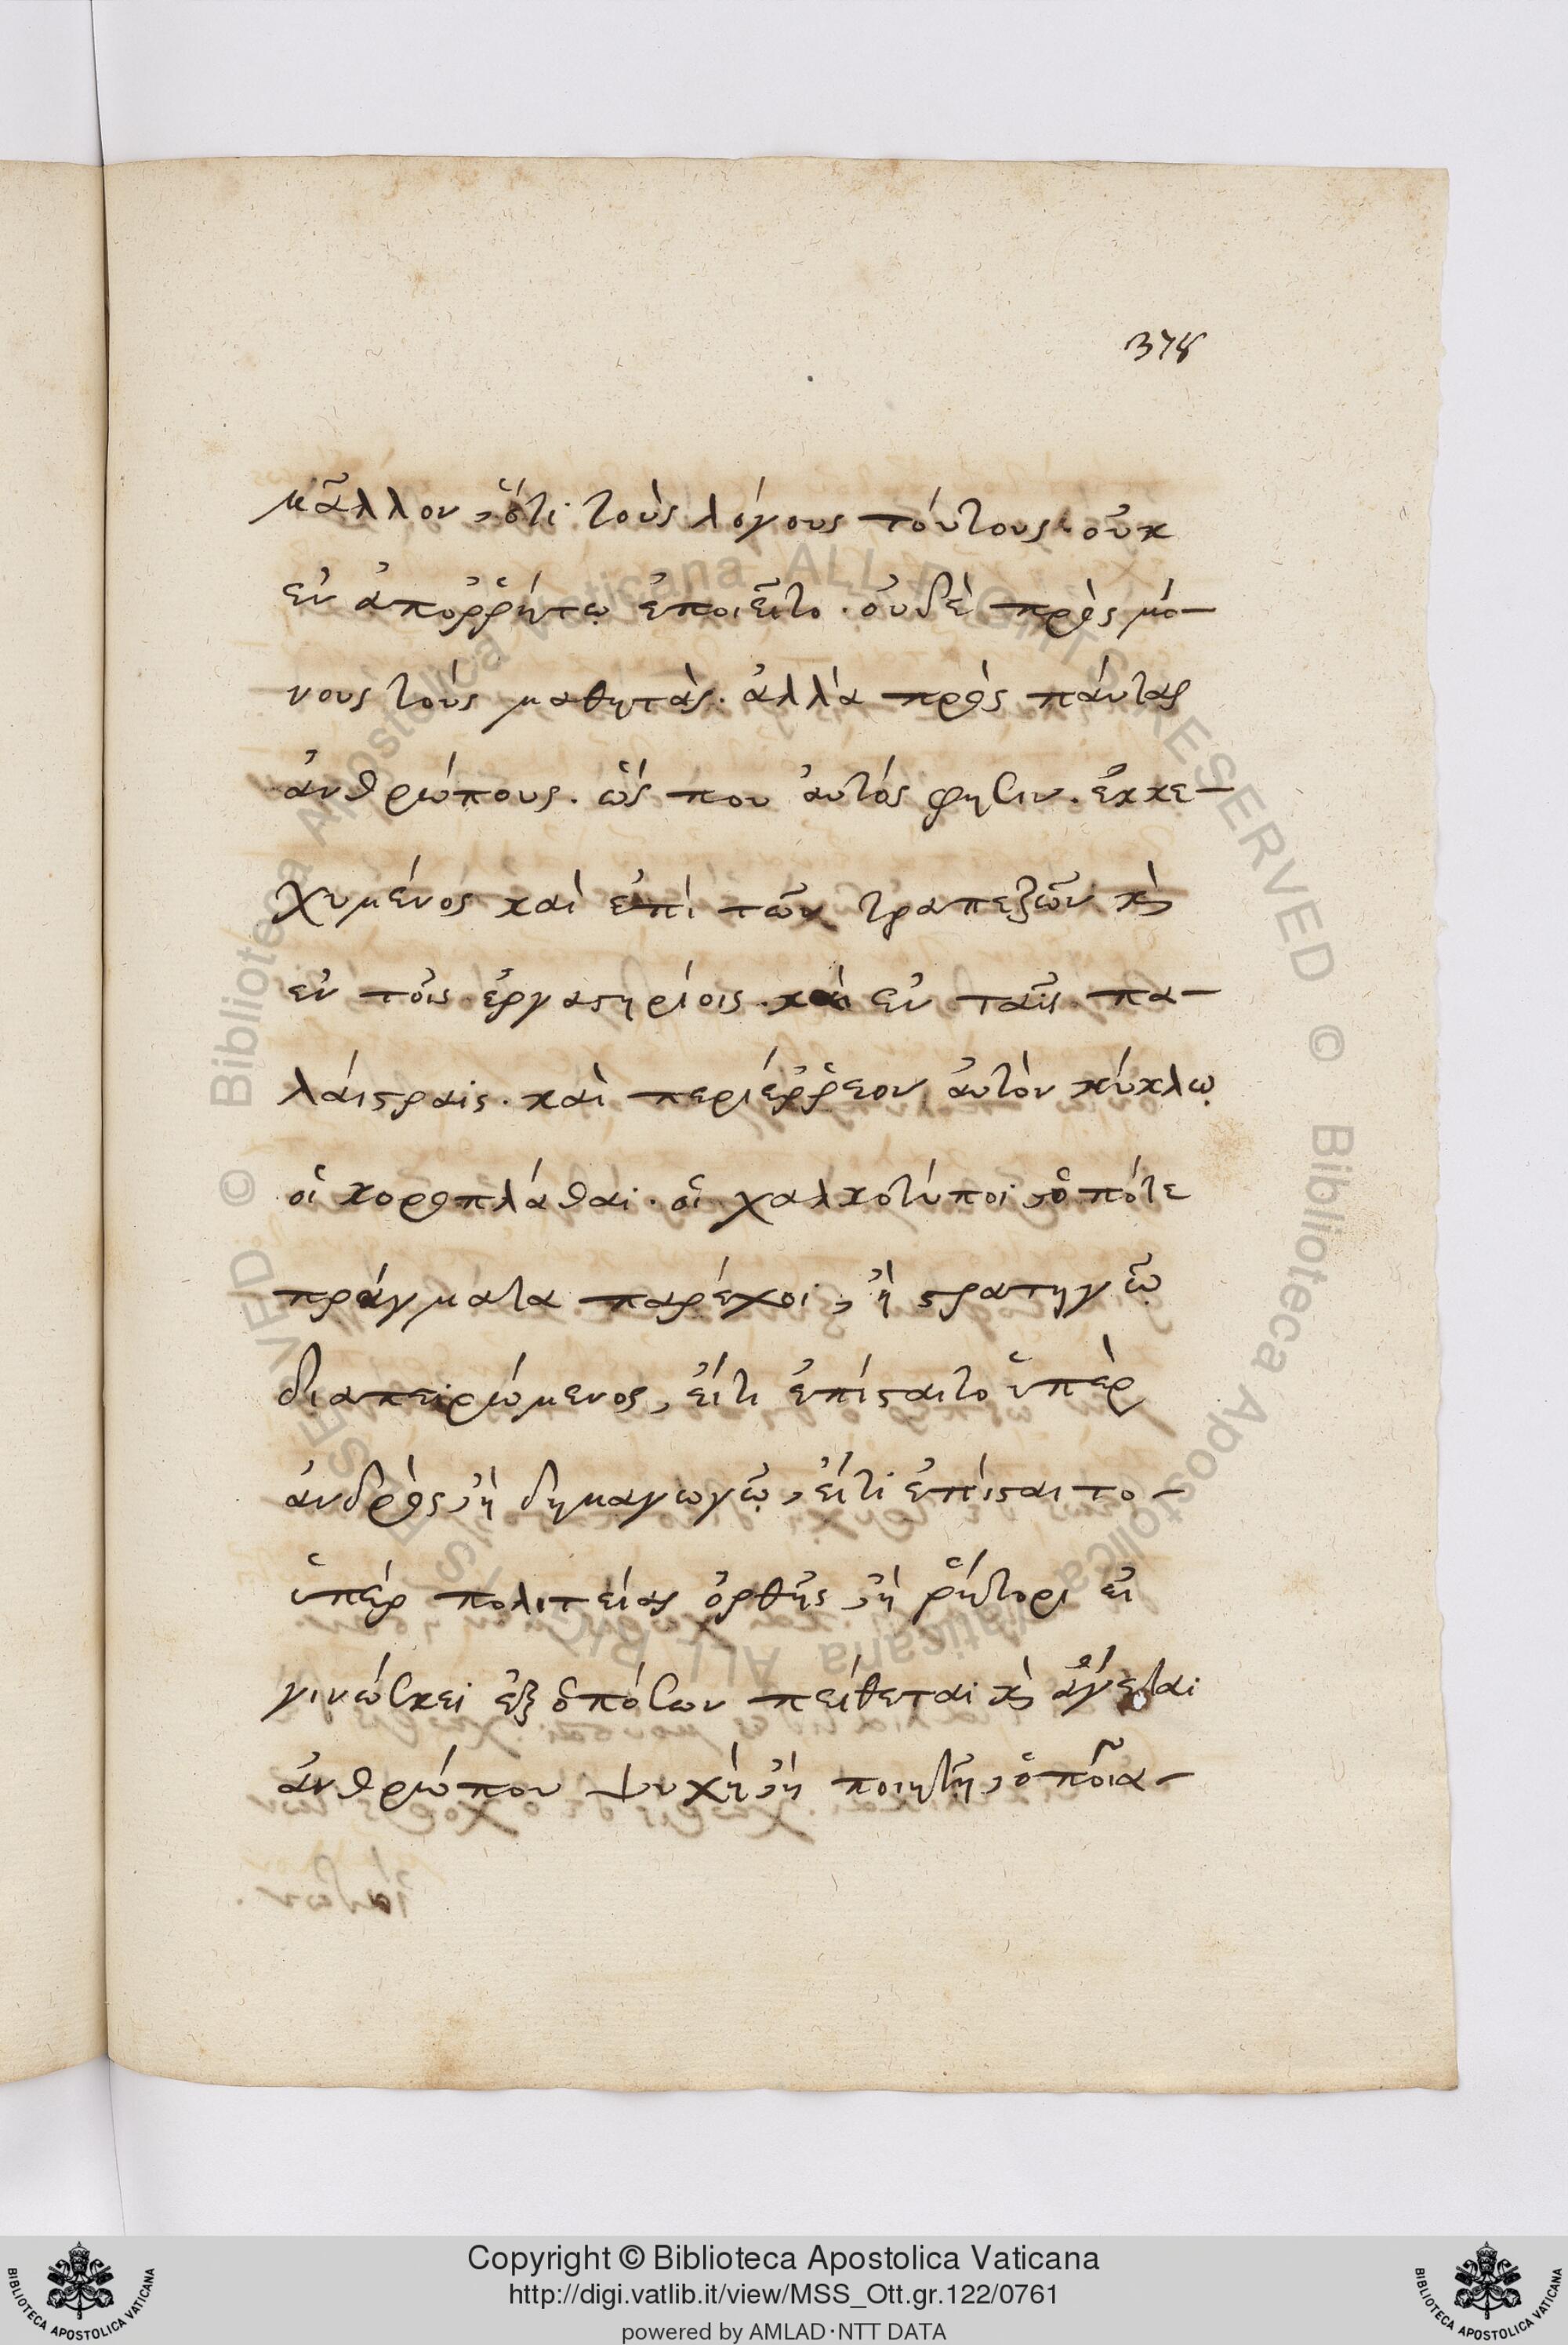 378
μᾶλλον, ὅτι τοὺς λόγους τούτους· οὐκ
ἐν ἀποῤῥήτῳ ἐποιεῖτο· οὐδὲ πρὸς μό-
νους τοὺς μαθητάς· ἀλλὰ πρὸς πάντας
ἀνθρώπους· ὥς που αὐτός φησιν· ἐκκε-
χυμένος καὶ ἐπὶ τῶν τραπεζῶν καὶ
ἐν τοῖς ἐργαστηρίοις· καὶ ἐν ταῖς πα-
λαίστραις· καὶ περιέῤῥεον αὐτὸν κύκλῳ
οἱ κοροπλάθαι· οἱ χαλκοτύποι, ὁπότε
πράγματα παρέχοι, ἢ στρατηγῷ
διαπειρώμενος, εἴ τι ἐπίσταιτο ὑπὲρ
ἀνδρὸς, ἢ δημαγωγῷ, εἴ τι ἐπίσταιτο-
ὑπὲρ πολιτείας ὀρθῆς, ἢ ῥήτορι εἰ
γινώσκει ἐξ ὁπόσων πείθεται καὶ ἄγεται
ἀνθρώπου ψυχὴ, ἢ ποιητῇ, ὁποῖα-
Copyright © Biblioteca Apostolica Vaticana
http://digi.vatlib.it/view/MSS_Ott.gr.122/0761
powered by AMLAD·NTT DATA
BIBLIOTECA APOSTOLICA VATICANA
BIBLIOTECA APOSTOLICA VATICANA
© Biblioteca Apostolica Vaticana ALL RIGHTS RESERVED
© Biblioteca Apostolica Vaticana ALL RIGHTS RESERVED